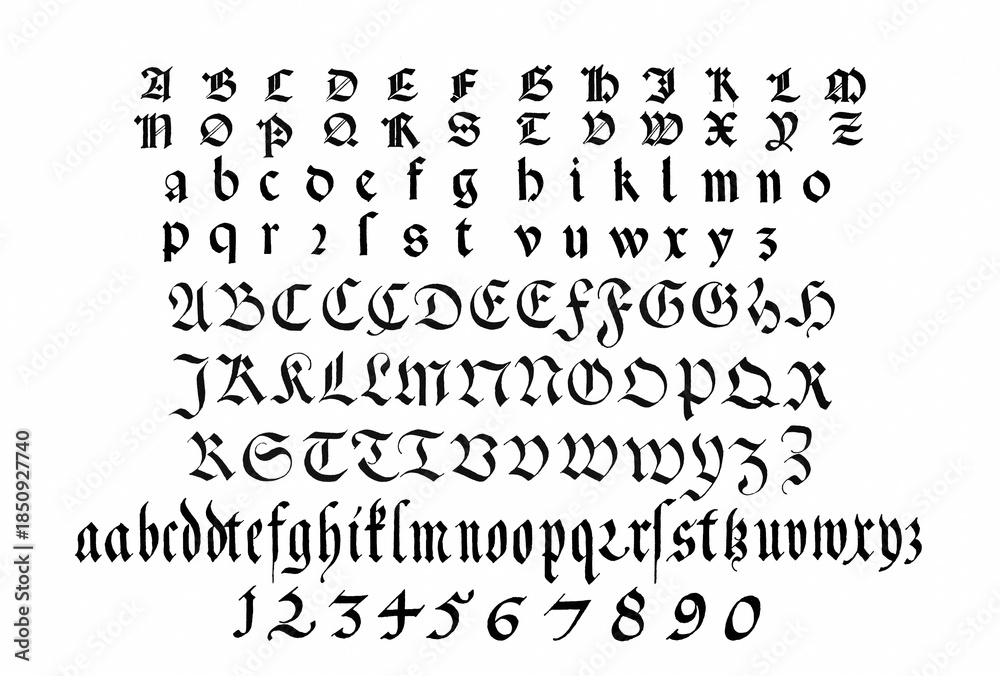 A B C D E F G H I K L M
N O P Q R S T V W X Y Z
a b c d e f g h i k l m n o
p q r ꝛ ſ s t v u w x y z
A B C C C D E E F F G G H H
J K K L L M N N O O P Q R
R S T T T V V W W Y Z Z
a a b c d d t e f g h i k l m n o o p q ꝛ r ſ s t tz u v w x y z
1 2 3 4 5 6 7 8 9 0
Adobe Stock | #1850927740